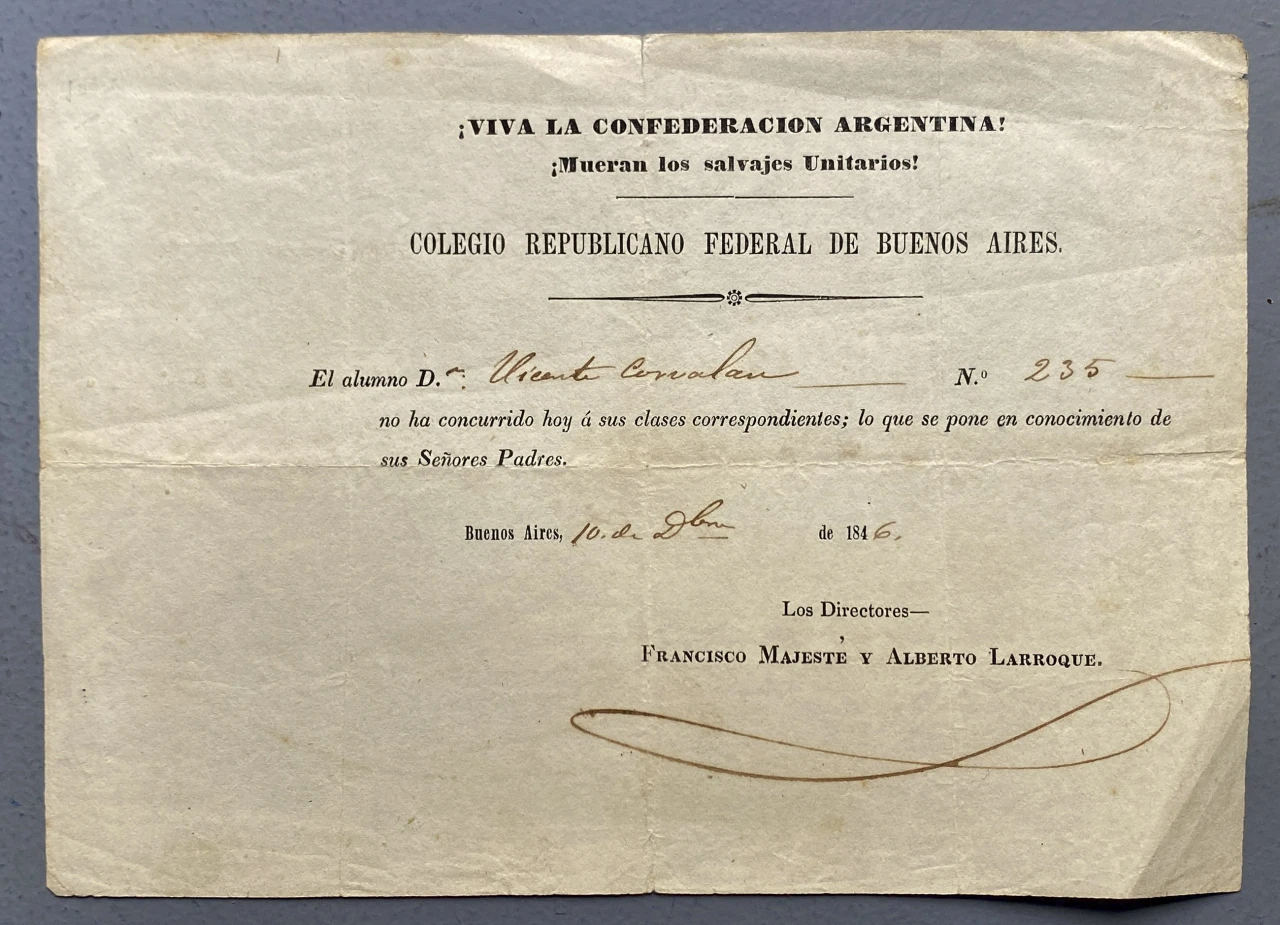 ¡VIVA LA CONFEDERACION ARGENTINA!
¡Mueran los salvajes Unitarios!
COLEGIO REPUBLICANO FEDERAL DE BUENOS AIRES.
El alumno D.n Vicente Corvalan N.o 235
no ha concurrido hoy á sus clases correspondientes; lo que se pone en conocimiento de
sus Señores Padres.
Buenos Aires, 10. de Dbre de 1846.
Los Directores—
FRANCISCO MAJESTÉ Y ALBERTO LARROQUE.